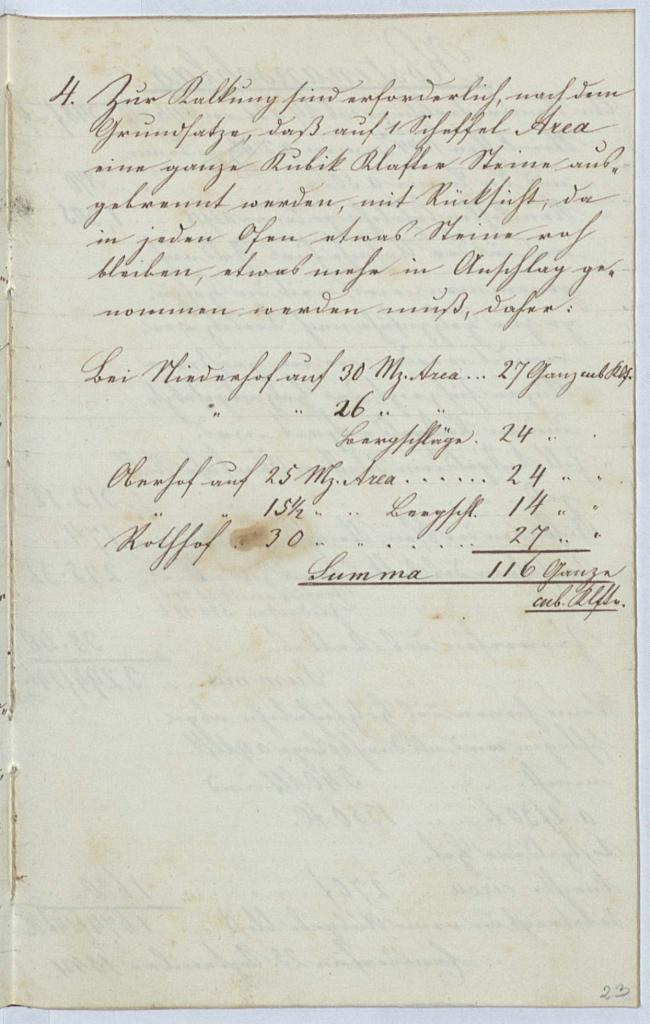 4. Zur Kalkung sind erforderlich, nach dem
Grundsatze, daß auf 1 Scheffel Area
eine ganze Kubik Klafter Steine aus-
gebrennt werden, mit Rücksicht, da
in jeden Ofen etwas Steine roh
bleiben, etwas mehr in Anschlag ge-
nommen werden muß, daher:
Bei Niederhof auf 30 Mz. Area ... 27 Ganz cub. Klf.
" " 26 " "
Bergschläge. 24 " "
Oberhof auf 25 Mz. Area ...... 24 " "
" " 15½ " " Bergschl. 14 " "
Rothhof " 30 " " ...... 27 " "
Summa 116 Ganze
cub. Klftr.
23